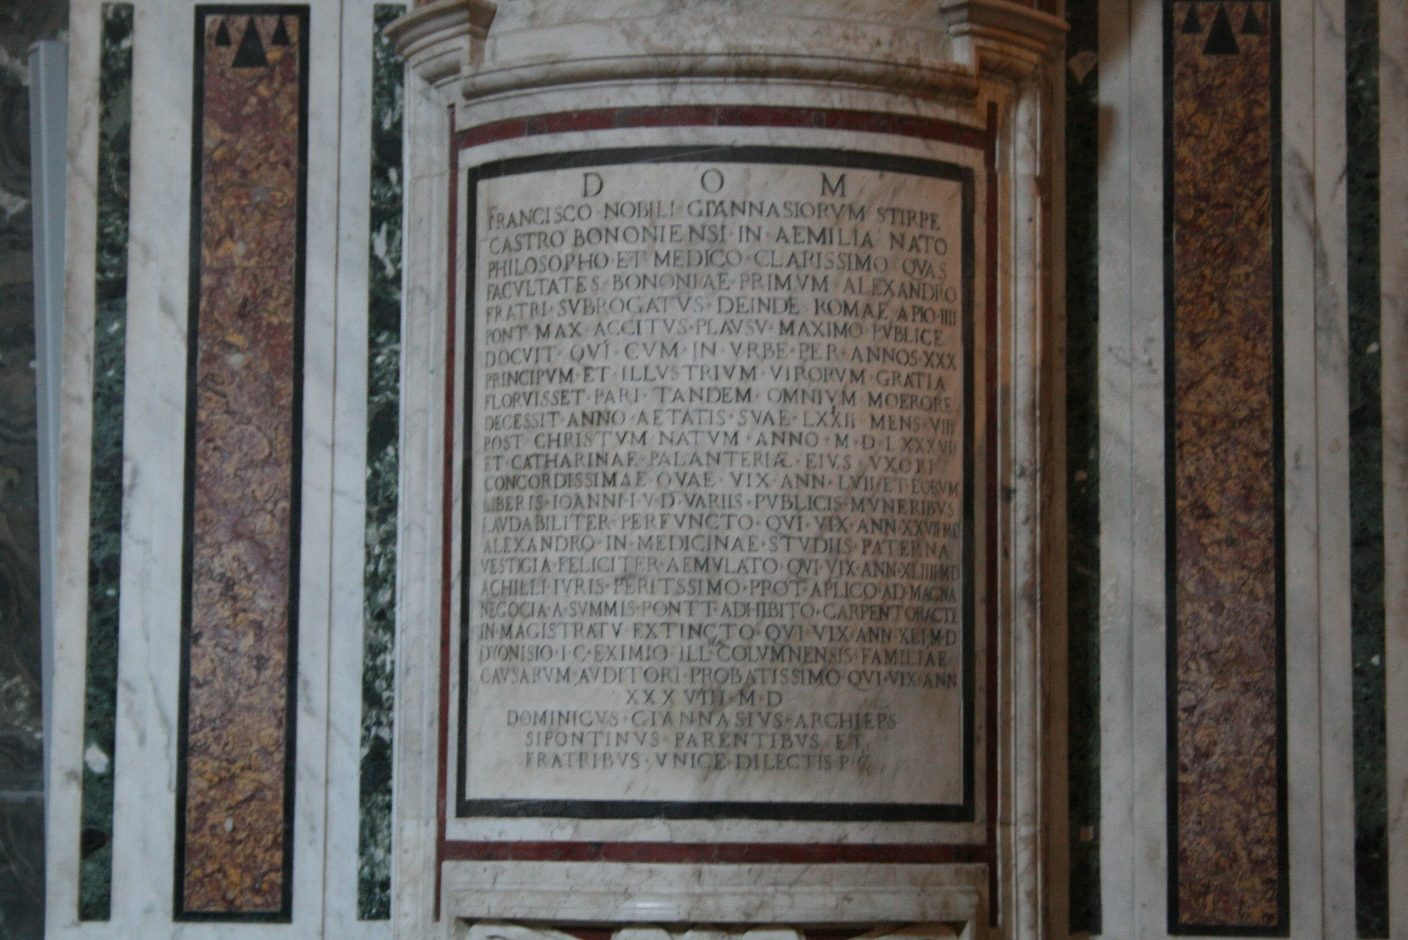 D O M
FRANCISCO·NOBILI·GIANNASIORVM STIRPE
CASTRO BONONIENSI·IN·AEMILIA NATO
PHILOSOPHO·ET·MEDICO·CLARISSIMO QVAS
FACVLTATES BONONIAE·PRIMVM·ALEXANDRO
FRATRI·SVBROGATVS·DEINDE·ROMAE A PIO·IIII
PONT MAX ACCITVS·PLAVSV·MAXIMO PVBLICE
DOCVIT·QVI·CVM·IN·VRBE·PER·ANNOS·XXX
PRINCIPVM·ET·ILLVSTRIVM·VIRORVM·GRATIA
FLORVISSET·PARI·TANDEM·OMNIVM·MOERORE
DECESSIT·ANNO·AETATIS·SVAE·LXXII·MENS·VIII
POST·CHRISTVM·NATVM·ANNO·M·D·LXXXVII
ET·CATHARINAE·PALANTERIÆ·EIVS·VXORI
CONCORDISSIMAE·QVAE·VIX·ANN·LVII·ET·EORVM
LIBERIS·IOANNI·I·V·D·VARIIS·PVBLICIS·MVNERIBVS
LAVDABILITER·PERFVNCTO·QVI·VIX·ANN·XXVII·MD
ALEXANDRO·IN·MEDICINAE·STVDIIS·PATERNA
VESTIGIA·FELICITER·AEMVLATO·QVI·VIX·ANN·XLIIII·MD
ACHILLI·IVRIS·PERITISSIMO·PROT·APLICO·AD·MAGNA
NEGOCIA·A·SVMMIS·PONTT·ADHIBITO·CARPENTORACTE
IN·MAGISTRATV·EXTINCTO·QVI·VIX·ANN·XLI·M·D
DYONISIO·I·C·EXIMIO·ILL·COLVMNENSIS·FAMILIAE
CAVSARVM·AVDITORI·PROBATISSIMO·QVI·VIX·ANN
XXXVIII·M·D
DOMINICVS·GIANNASIVS·ARCHIEPS
SIPONTINVS·PARENTIBVS·ET
FRATRIBVS·VNICE·DILECTIS·P·C